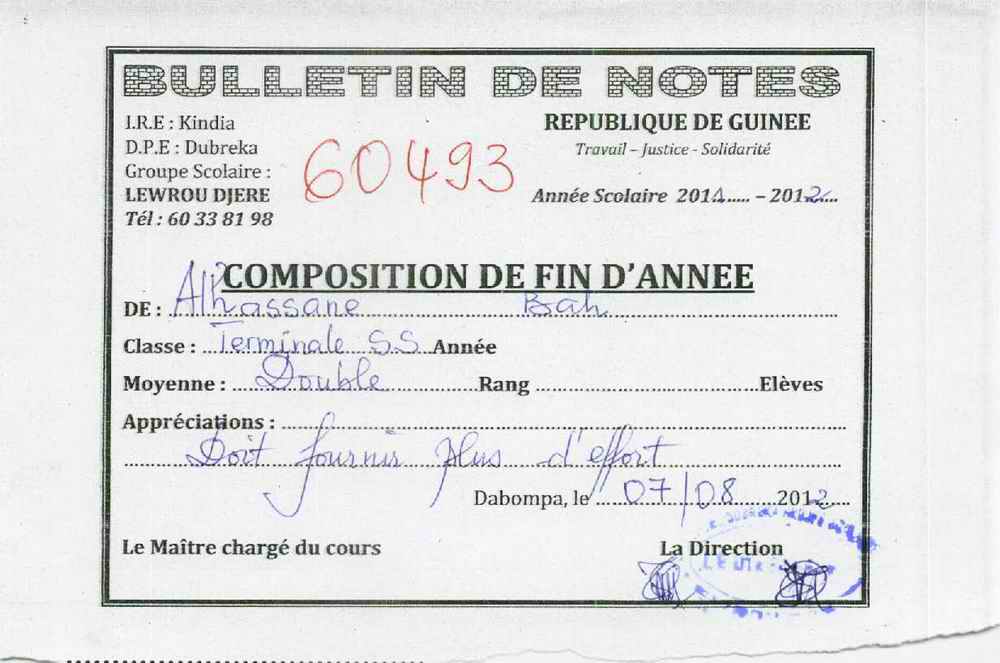 BULLETIN DE NOTES
I.R.E : Kindia
D.P.E : Dubreka
Groupe Scolaire :
LEWROU DJERE
Tél : 60 33 81 98
60493
REPUBLIQUE DE GUINEE
Travail – Justice - Solidarité
Année Scolaire 2011...... – 2012......
COMPOSITION DE FIN D'ANNEE
DE : Alhassane Bah
Classe : Terminale S.S Année
Moyenne : Double Rang Elèves
Appréciations :
Doit fournir plus d'effort
Dabompa, le 07/08 2012
Le Maître chargé du cours
La Direction